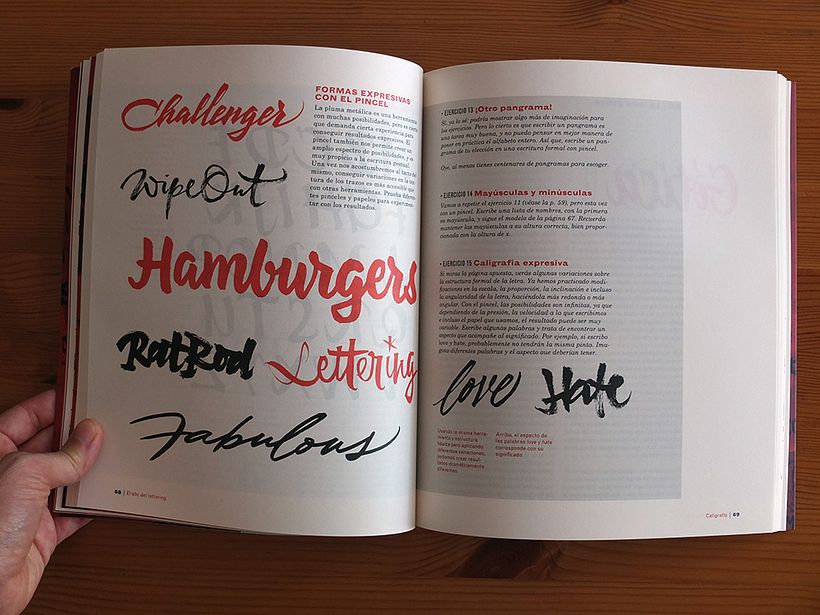 Challenger
WipeOut
Hamburgers
RatRod
Lettering
Fabulous
FORMAS EXPRESIVAS
CON EL PINCEL
La pluma metálica es una herramienta
con muchas posibilidades, pero es cierto
que demanda cierta experiencia para
conseguir resultados expresivos. El
pincel también nos permite crear un
amplio espectro de posibilidades, y es
muy propicio a la escritura gestual.
Una vez nos acostumbremos al tacto del
mismo, conseguir variaciones en la ten-
sión de los trazos es más accesible que
con otras herramientas. Prueba diferen-
tes pinceles y papeles para experimen-
tar con los resultados.
68 | El abc del lettering
• EJERCICIO 13 ¡Otro pangrama!
Sí, ya lo sé: podría mostrar algo más de imaginación para
los ejercicios. Pero lo cierto es que escribir un pangrama es
una tarea muy buena, y no puedo pensar en mejor manera de
poner en práctica el alfabeto entero. Así que, escribe un pan-
grama de tu elección en una escritura formal con pincel.
Oye, al menos tienes centenares de pangramas para escoger.
• EJERCICIO 14 Mayúsculas y minúsculas
Vamos a repetir el ejercicio 11 (véase la p. 59), pero esta vez
con un pincel. Escribe una lista de nombres, con la primera
en mayúscula, y sigue el modelo de la página 67. Recuerda
mantener las mayúsculas a su altura correcta, bien propor-
cionada con la altura de x.
• EJERCICIO 15 Caligrafía expresiva
Si miras la página opuesta, verás algunas variaciones sobre
la estructura formal de la letra. Ya hemos practicado modi-
ficaciones en la escala, la proporción, la inclinación e incluso
la angularidad de la letra, haciéndola más redonda o más
angular. Con el pincel, las posibilidades son infinitas, ya que
dependiendo de la presión, la velocidad a la que escribimos
e incluso el papel que usamos, el resultado puede ser muy
variable. Escribe algunas palabras y trata de encontrar un
aspecto que acompañe al significado. Por ejemplo, si escribo
love y hate, probablemente no tendrán la misma pinta. Ima-
gina diferentes palabras y el aspecto que deberían tener.
love Hate
Usando la misma herra-
mienta y estructura
básica pero aplicando
diferentes variaciones,
podemos crear resul-
tados dramáticamente
diferentes.
Arriba, el aspecto de
las palabras love y hate
corresponde con su
significado.
Caligrafía | 69